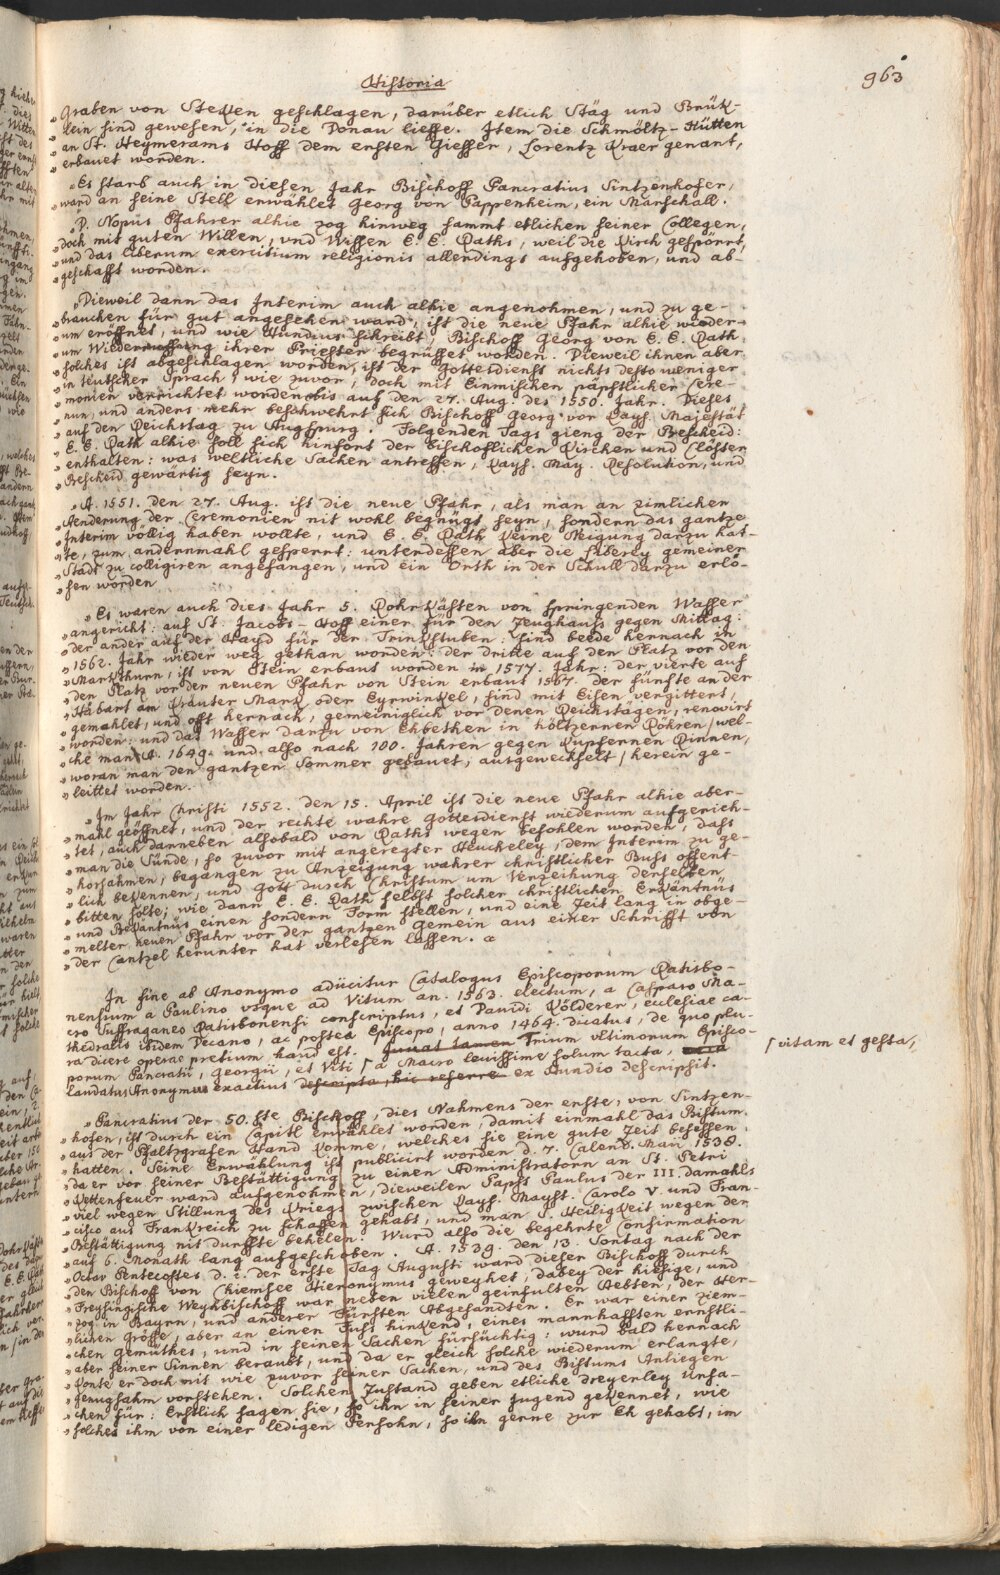 Historia
963
„Graben von Stecken geschlagen, darüber etlich Stäg und Brük-
„lein sind gewesen, in die Donau lieffe. Item die Schmöltz-Hütten
„an St. Heymerams Hoff dem ersten Giesser, Lorentz Kraer genant,
„erbauet worden.
„Es starb auch in diesen Jahr Bischoff Pancratius Sintzenhofer,
„ward an seine Stell erwählet Georg von Pappenheim, ein Marschall.
„D. Nopus Pfahrer alhie zog hinweg sammt etlichen seiner Collegen,
„doch mit guten Willen, und Wissen E. E. Raths, weil die Kirch gespörrt,
„und das liberum exercitium religionis allerdings aufgehoben, und ab-
„geschafft worden.
„Dieweil dann das Interim auch alhie angenohmen, und zu ge-
„brauchen für gut angesehen ward, ist die neue Pfahr alhie wieder-
„um eröffnet, und wie Hundius schreibt, Bischoff Georg von E. E. Rath
„um ihrer Priester begrüsset worden. Dieweil ihnen aber
„solches ist abgeschlagen worden, ist der Gottesdienst nichts desto weniger
„in teutscher Sprach, wie zuvor, doch mit Einmischen päpstlicher Cere-
„monien verrichtet worden bis auf den 27. Aug. des 1550. Jahr. Dieses
„nun, und anders mehr beschwehrt sich Bischoff Georg vor Kays. Majestät
„auf den Reichstag zu Augspurg. Folgenden Tags gieng der Bescheid:
„E. E. Rath alhie soll sich hinfort der Bischoflichen Kirchen und Clöster
„enthalten: was weltliche Sachen antreffen, Kays. May. Resolution, und
„Bescheid gewärtig seyn.
„A. 1551. den 27. Aug. ist die neue Pfahr, als man an zimlichen
„Aenderung der Ceremonien nit wohl begnugt seyn, sondern das gantze
„Interim völlig haben wollte, und E. E. Rath keine Neigung darzu hat-
„te, zum andernmahl gesperrt: unterdessen aber die Liberey gemeiner
„Stadt zu colligiren angefangen, und ein Orth in der Schull darzu erlö-
„sen worden
„Es waren auch dies Jahr 5. Rohrkästen von springenden Wasser
„angericht: auf St. Jacobs-Hoff einer für den Zeughauss gegen Mittag:
„der ander auf der Hayd für der Trinkstuben: sind beede hernach in
„1562. Jahr wieder weg gethan worden: der dritte auf den Platz vor den
„Marktthurn, ist von Stein erbaut worden in 1577. Jahr: der vierte auf
„den Platz vor der neuen Pfahr von Stein erbaut 1567. der fünfte an der
„Habart am Kräuter Mark oder Eyrwinkel, sind mit Eisen vergittert,
„gemahlet, und offt hernach, gemeiniglich vor denen Reichstägen, renovirt
„worden: und das Wasser darzu von Ehbethen in höltzernen Röhren, wel-
„che man A. 1649. und also nach 100. Jahren gegen Kupfernen Rinnen,
„woran man den gantzen Sommer gebauet, ausgewechselt, herein ge-
„leittet worden.
„Im Jahr Christi 1552. den 15. April ist die neue Pfahr alhie aber-
„mahl geöffnet, und der rechte wahre Gottesdienst wiederum aufgerich-
„tet, auch darneben alsobald von Raths wegen befohlen worden, dass
„man die Sünde, so zuvor mit angeregter Heucheley, dem Interim zu ge-
„horsahmen, begangen zu Anzeigung wahrer christlicher Buss offent-
„lich bekennen, und Gott durch Christum um Verzeihung derselben
„bitten solte; wie dann E. E. Rath selbst solcher christlichen Erkäntnüs
„und Bekäntnüs einen sondern Form stellen, und eine Zeit lang in obge-
„melter neuen Pfahr vor der gantzen Gemein aus einer Schrifft von
„der Cantzel herunter hat verlesen lassen.
In fine ab Anonymo adiicitur Catalogus Episcoporum Ratisbo-
nensium a Paulino usque ad Vitum an. 1563. electum, a Casparo Ma-
cro Suffraganeo Ratisbonensi conscriptus, et Davidi Kölderer, ecclesiae ca-
thedralis ibidem Decano, ac postea Episcopo, anno 1464. dicatus, de quo plu-
ra dicere operae pretium haud est. Juvat tamen Trium ultimorum Episco-
porum Pancratii, Georgii, et Viti ⌈ a Macro levissime solum tacta,
⌈ vitam et gesta,
laudatus Anonymus exactius descripta, hic referre ex Hundio descripsit.
„Pancratius der 50.ste Bischoff, dies Nahmens der erste, von Sintzen-
„hofen, ist durch ein Capitl erwählet worden, damit einmahl das Bistum
„aus der Pfaltzgrafen Hand komme, welches sie eine gute Zeit besessen
„hatten. Seine Erwählung ist publicirt worden d. 7. Calend. Maii 1538.
„da er vor seiner Bestättigung zu einen Administratorn an St. Petri
„Kettenfeuer ward aufgenohmen, dieweilen Papst Paulus der III. damahls
„viel wegen Stillung des Kriegs zwischen Kays. Mayst. Carolo V. und Fran-
„cisco aus Frankreich zu schaffen gehabt, und man S. Heiligkeit wegen der
„Bestättigung nit durffte behelen. Wurd also die begehrte Confirmation
„auf 6. Monath lang aufgeschoben. A. 1539. den 13. Sontag nach der
„Octav Pentecostes d. i. der erste Tag Augusti ward dieser Bischoff durch
„den Bischoff von Chiemsee Hieronymus geweyhet, dabey der hiesige, und
„Freysingische Weyhbischoff war neben vielen geinfulten Aebten: der Her-
„zog in Bayrn, und anderer Fürsten Abgesandten. Er war einer ziem-
„lichen Grösse, aber an einen Fuss hinkend, eines mannhafften ernstli-
„chen Gemüthes, und in seinen Sachen fürsüchtig: wurd bald hernach
„aber seiner Sinnen beraubt, und da er gleich solche wiederum erlangte,
„konte er doch mit wie zuvor seiner Sachen, und des Bistums Anliegen
„genugsahm vorstehen. Solchen Zustand geben etliche dreyerley Ursa-
„chen für: Erstlich sagen sie, so ihn in seiner Jugend gekennet, wie
„solches ihm von einer ledigen Persohn, so ihn gerne zur Eh gehabt, im